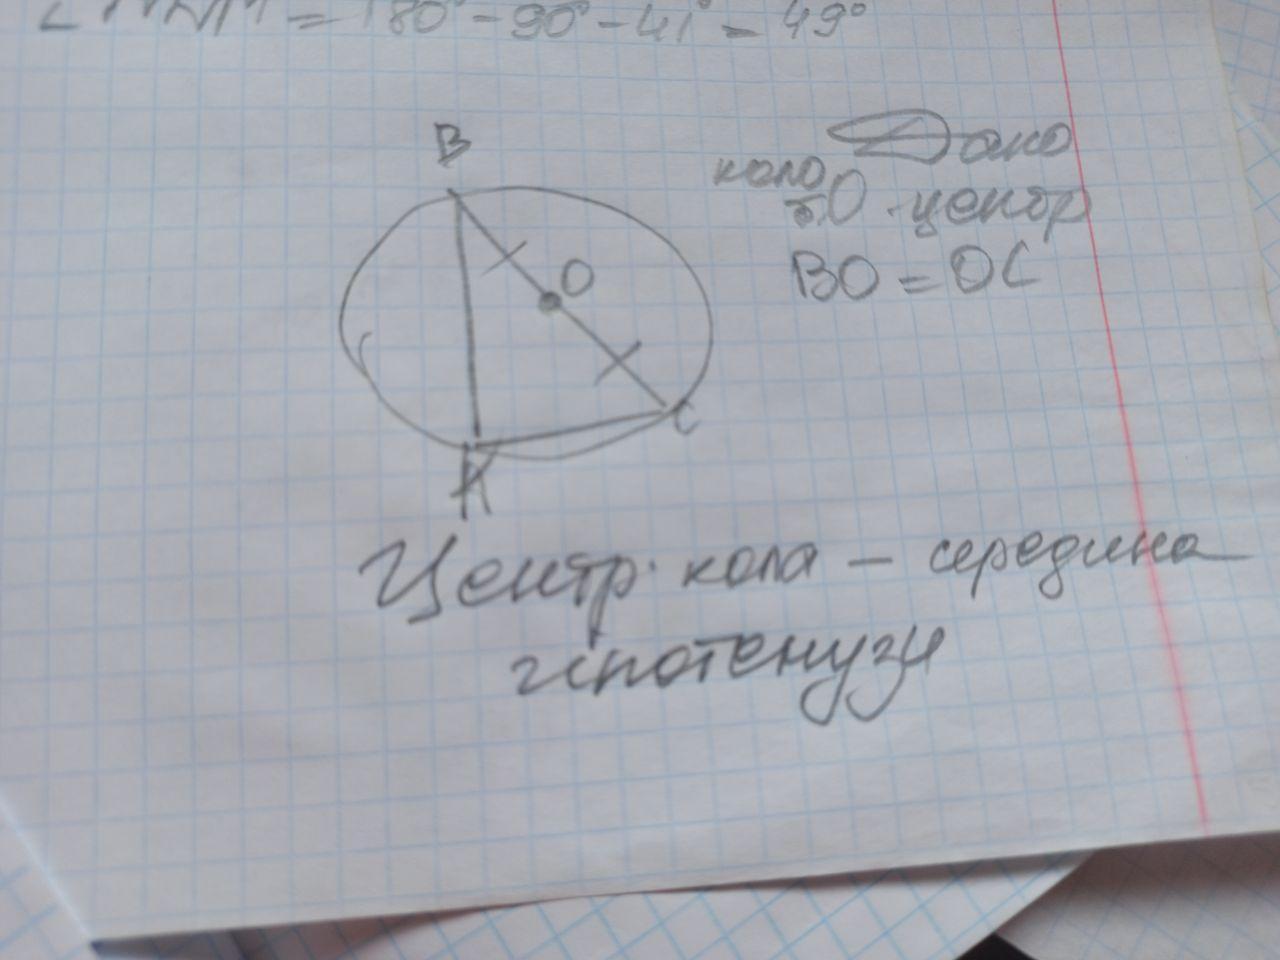 = 180° - 90° - 41° = 49°
B
Дано
коло
т.О - центр
O
BO = OC
C
K
Центр кола — середина
гіпотенузи